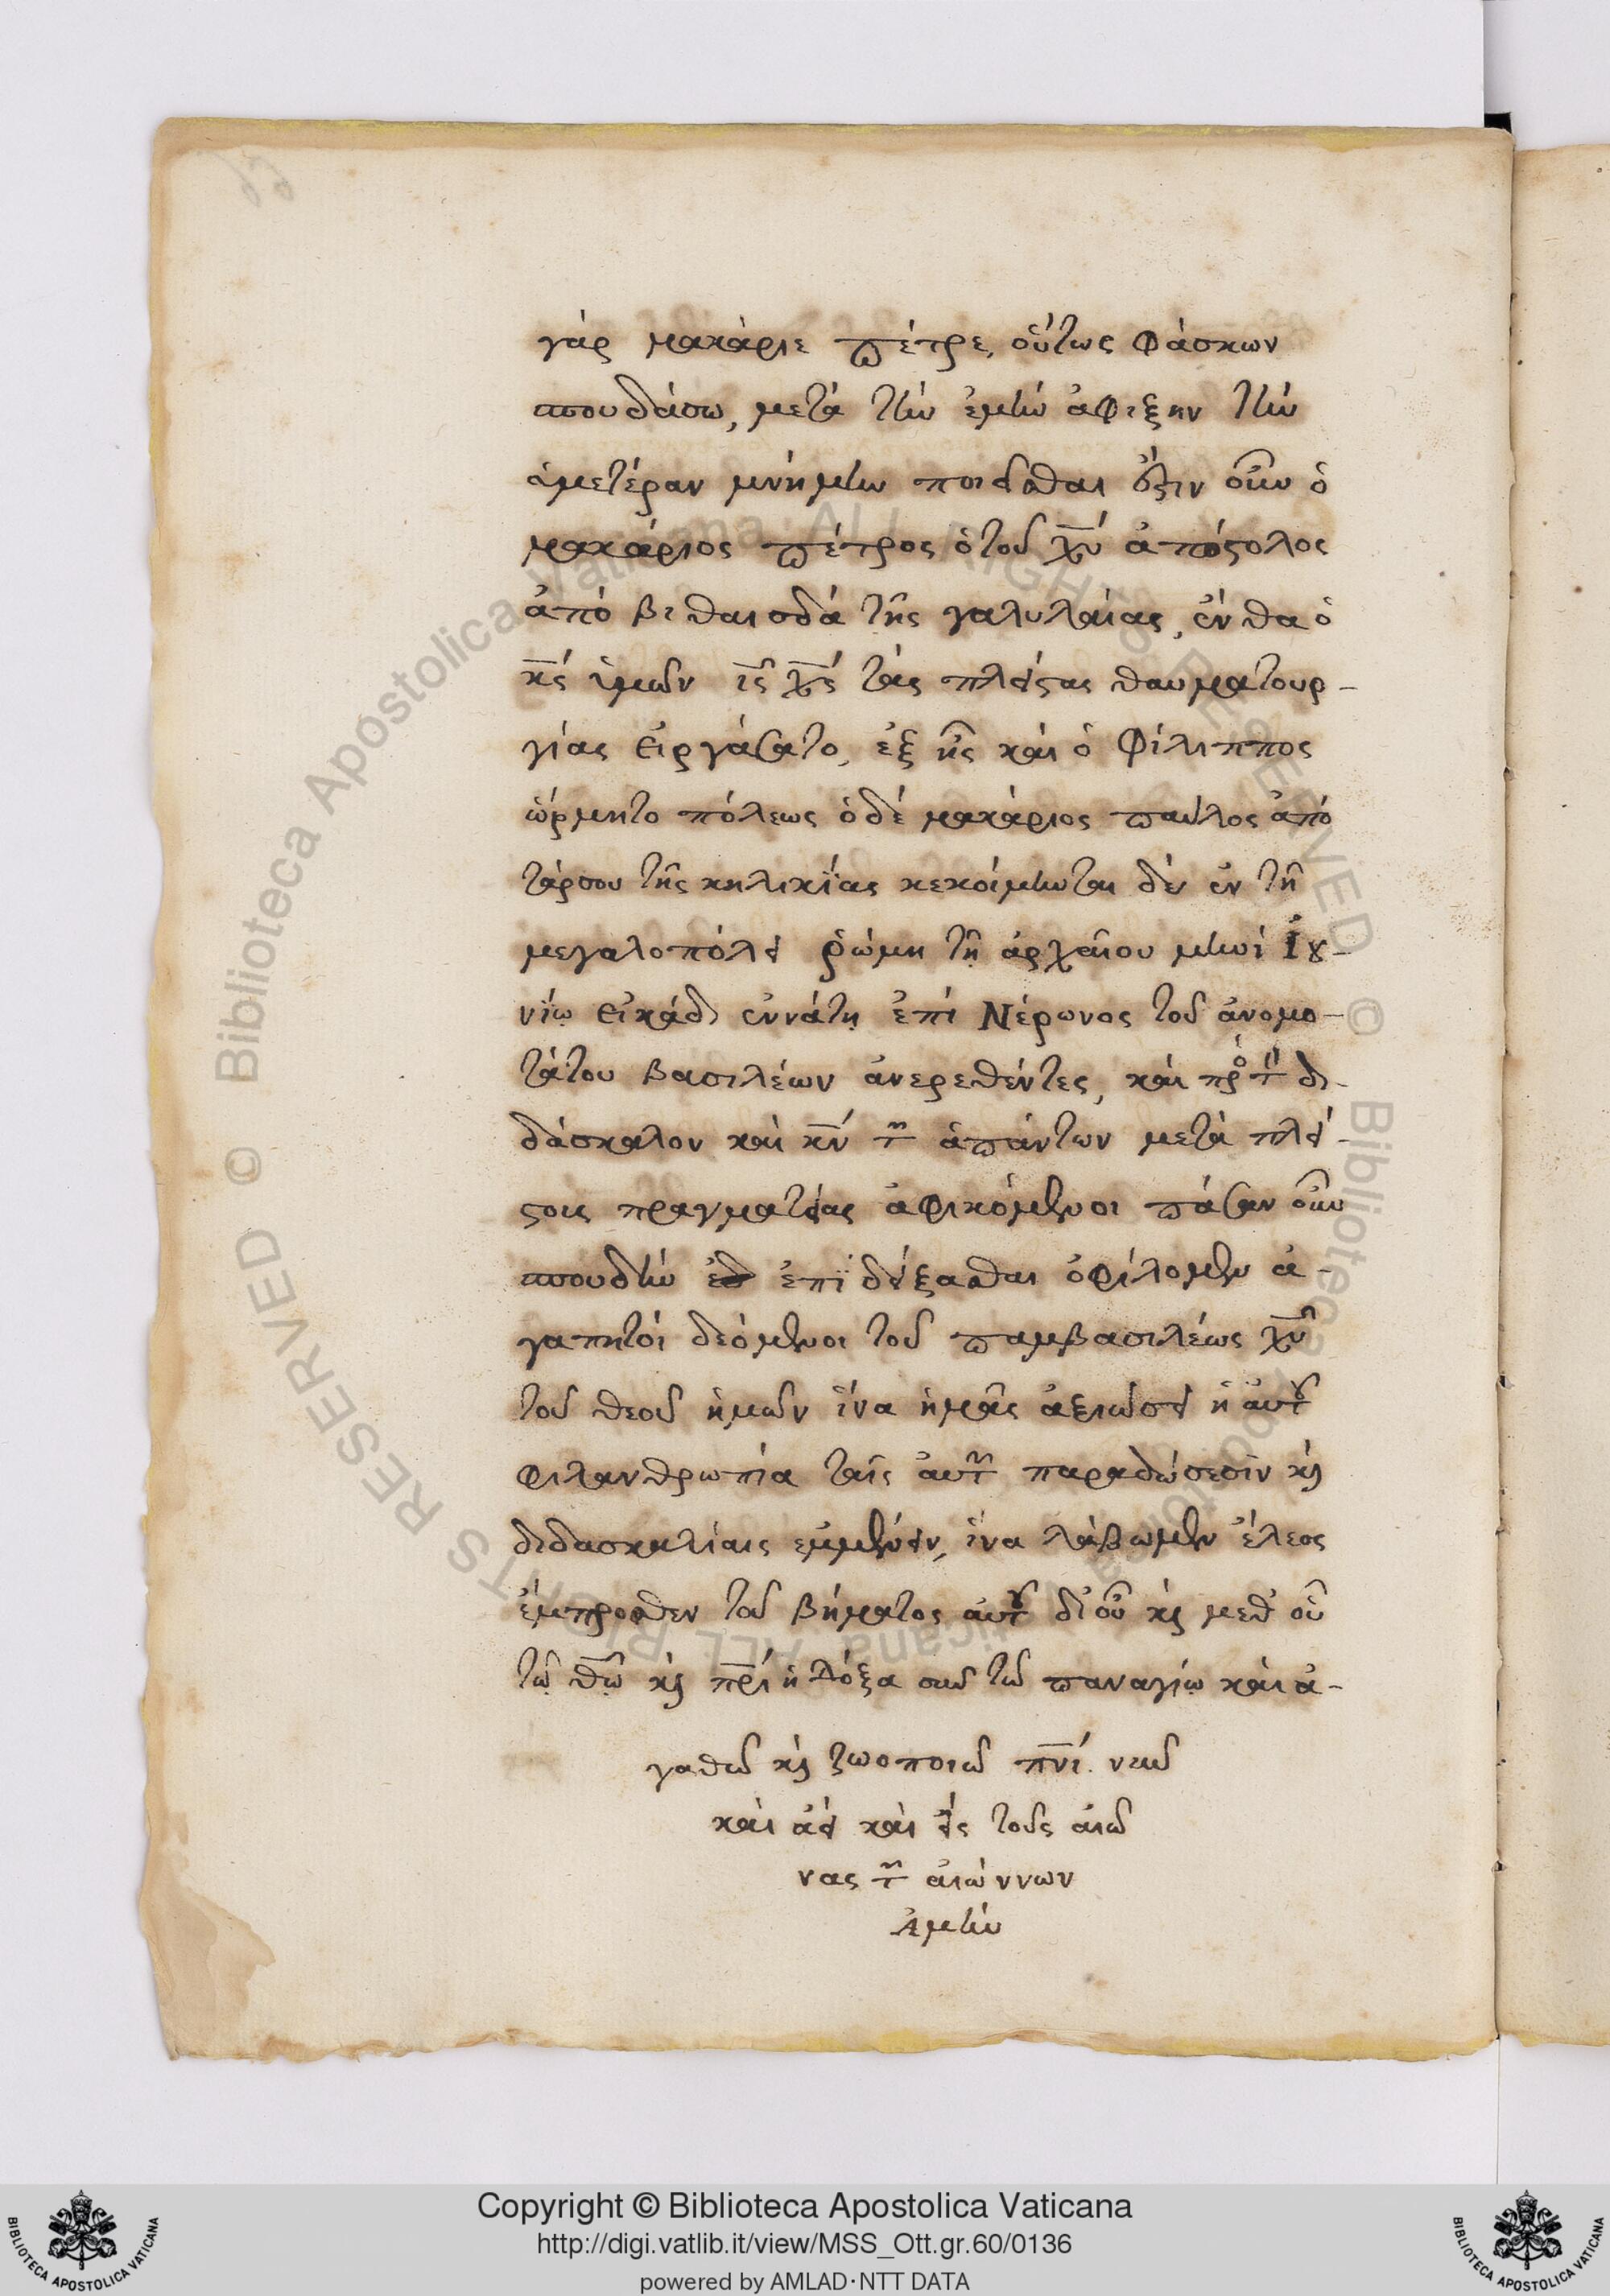 γάρ μακάριε πέτρε, οὕτως φάσκων
σπουδάσω, μετά τὴν ἐμὴν ἀφιξην τὴν
ἁμετέραν μνήμην ποιεῖσθαι ἔστιν οὖν ὁ
μακάριος πέτρος ὁ τοῦ χυ ἀπόστολος
ἀπό βιθαισδά τῆς γαλυλαίας, ἐνθα ὁ
κς ἡμῶν ις χς τάς πλείστας θαυματουρ-
γίας εἰργάσατο, ἐξ ἧς καὶ ὁ φίλιππος
ὥρμητο πόλεως ὁ δέ μακάριος παύλος ἀπό
τάρσου τῆς κηλικΐας κεκοίμηνται δέν ἐν τῆ
μεγαλοπόλει ῥώμη τῆ ἀρχαίου μηνί Ἰου-
νίῳ εἰκάδι ἐννάτη ἐπί Νέρωνος τοῦ ἀνομο-
τάτου βασιλέων ἀνερεθέντες, καί πρὸ τὸν δι-
δάσκαλον καὶ κν τῶν ἁπάντων μετά πλεί-
στοις πραγματείας ἀφικόμενοι πάσαν οὖν
σπουδὴν ἐπϊδείξασθαι ὀφίλομεν ἀ-
γαπητοί δεόμενοι τοῦ παμβασιλέως χυ
τοῦ θεοῦ ἡμῶν ἵνα ἡμᾶς ἀξιώσει ἡ αὐτοῦ
φιλανθρωπία ταῖς αὐτῶν παραδώσεσίν καὶ
διδασκαλίαις ἐμμένειν, ἵνα λάβωμεν ἔλεος
ἐμπροσθεν τοῦ βήματος αὐτοῦ δι οὗ καὶ μεθ οὗ
τῷ θῷ καὶ πρί ἡ δόξα σὺν τῶ παναγίῳ καὶ ἀ-
γαθῶ καὶ ζωοποιῶ πνί. νῦν
καὶ ἀεί καὶ εἰς τοῦς αἰῶ
νας τῶν αἰώννων
Ἀμήν
Copyright © Biblioteca Apostolica Vaticana
http://digi.vatlib.it/view/MSS_Ott.gr.60/0136
powered by AMLAD·NTT DATA
BIBLIOTECA APOSTOLICA VATICANA
BIBLIOTECA APOSTOLICA VATICANA